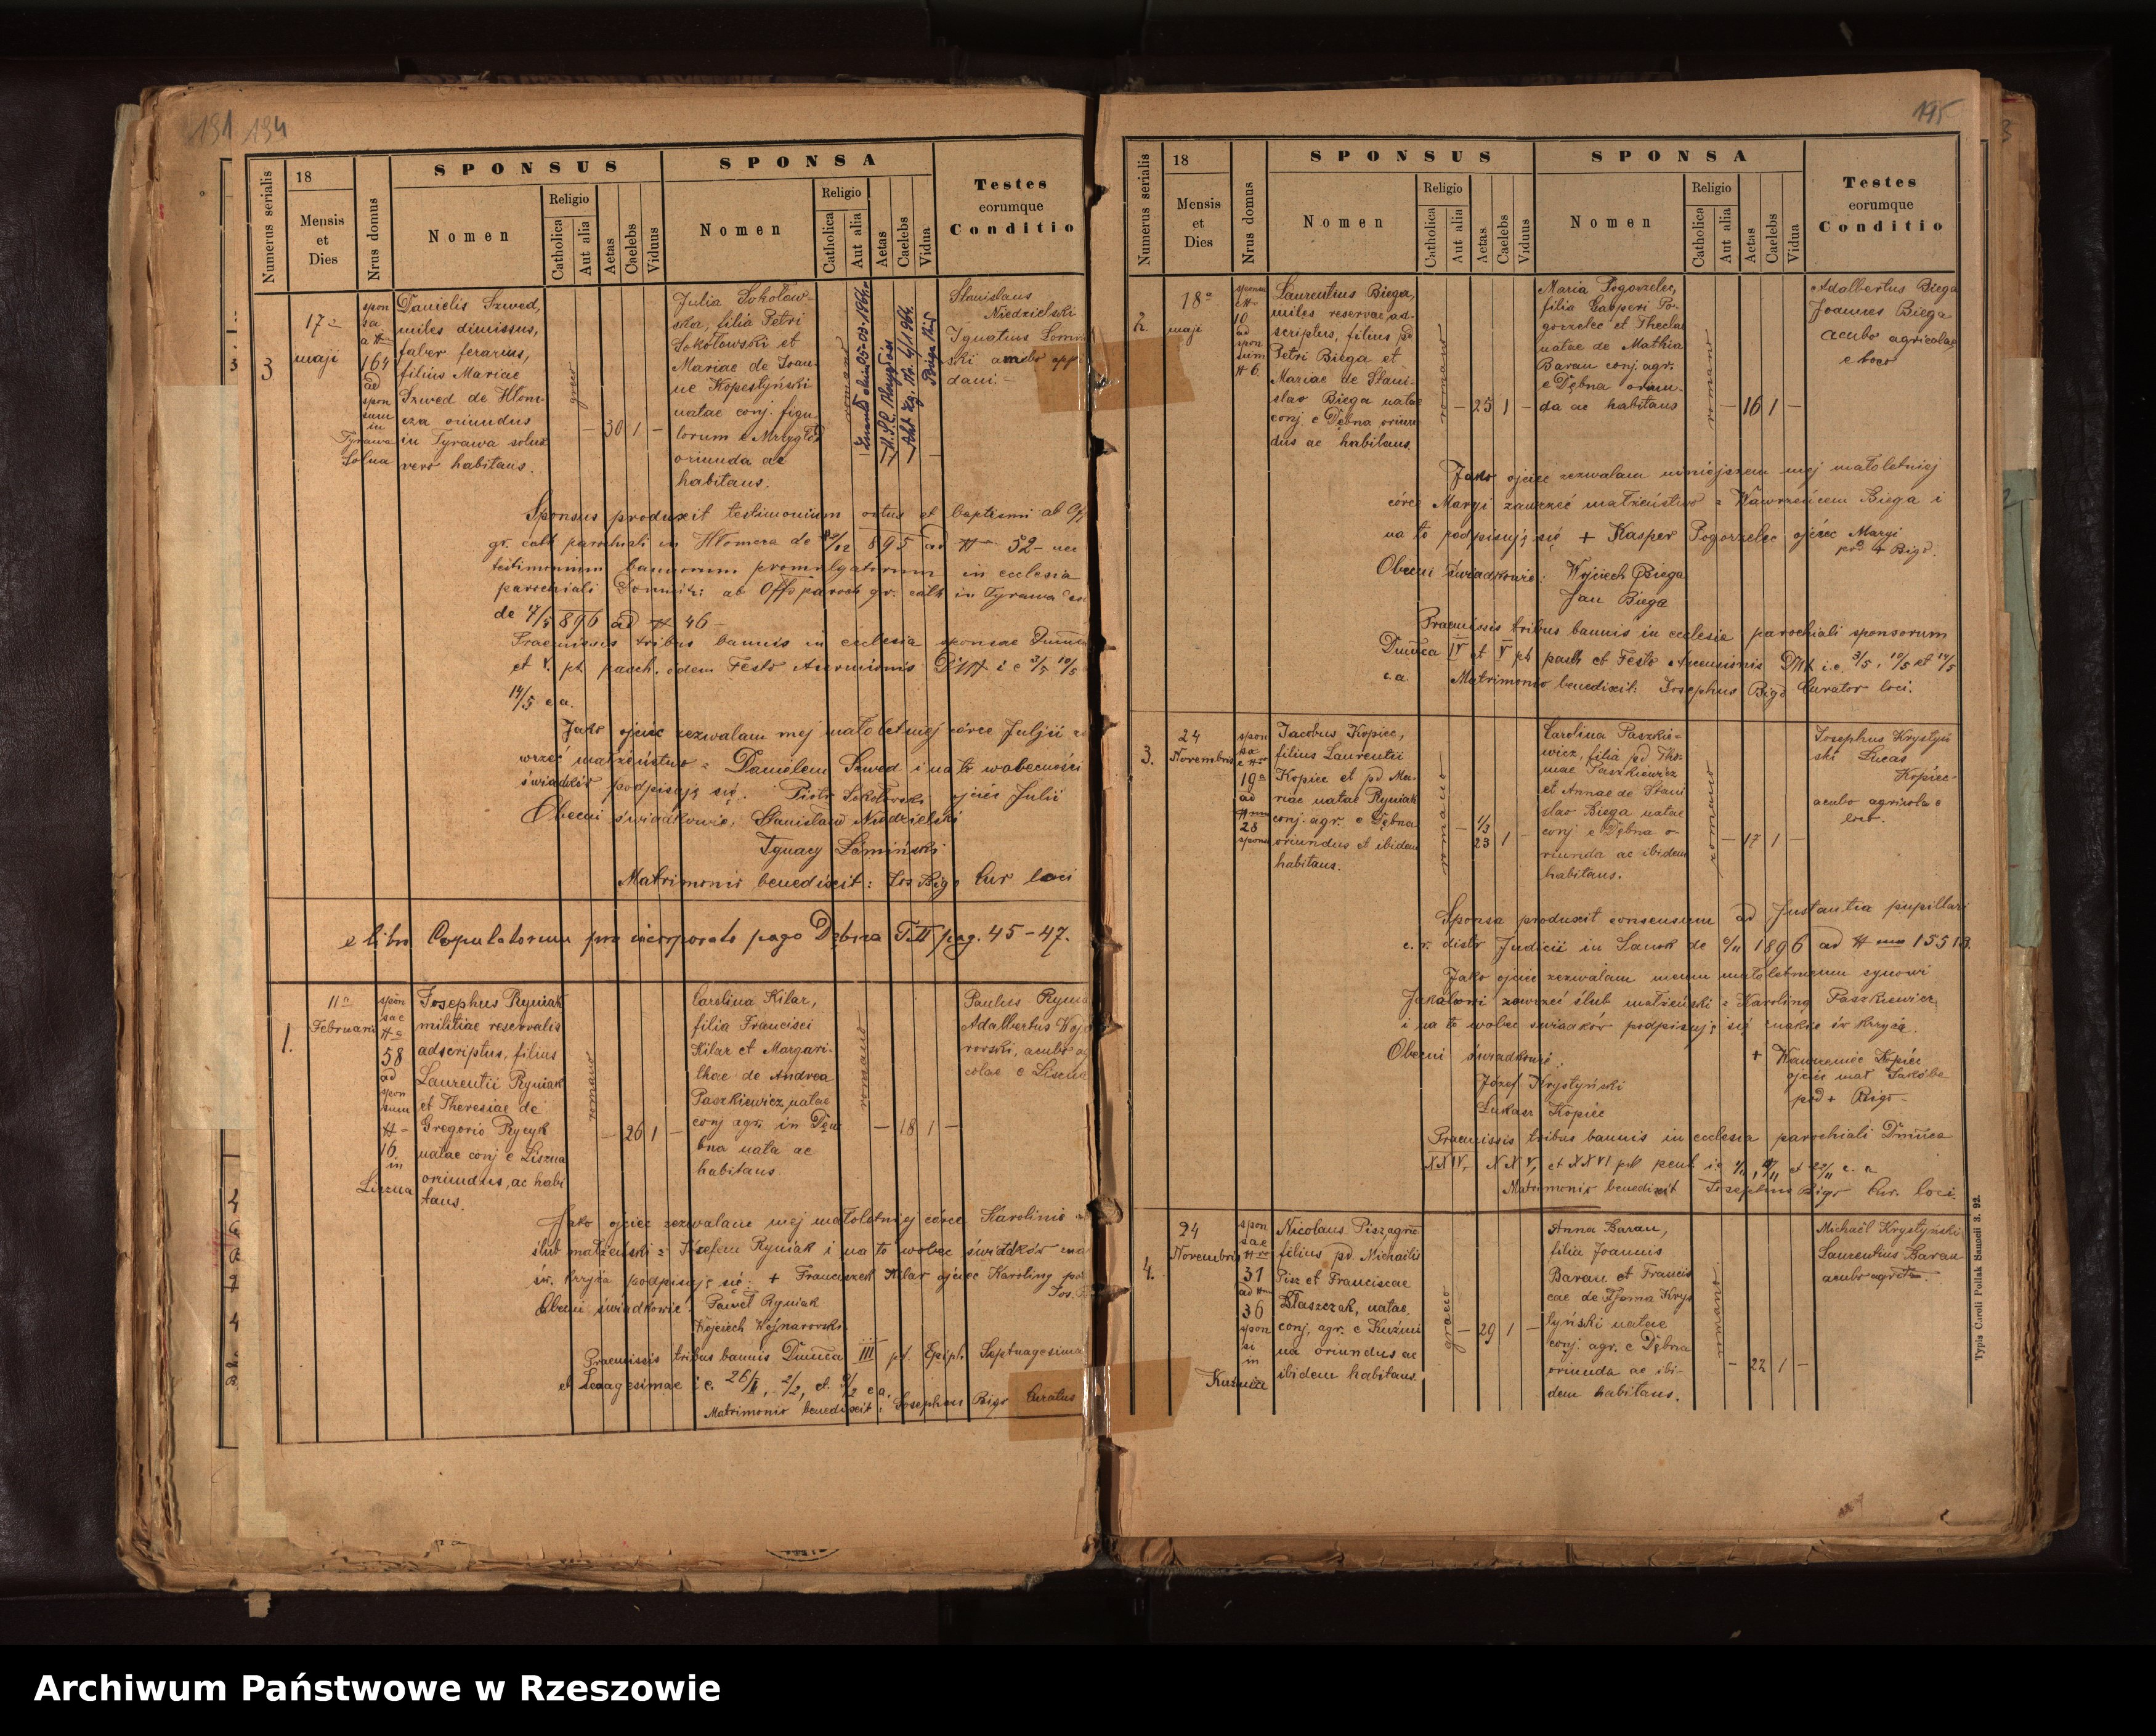 191 194
Numerus serialis
18
Mensis
et
Dies
Nrus domus
SPONSUS
Nomen
Religio
Catholica
Aut alia
Aetas
Caelebs
Viduus
SPONSA
Nomen
Religio
Catholica
Aut alia
Aetas
Caelebs
Vidua
Testes
eorumque
Conditio
3
17
maji
spon
sa
164
ad
spon
sum
in
Tyrawa
Solna
Danielis Szwed,
miles dimissus,
faber ferarius,
filius Mariae
Szwed de Hłom-
cza oriundus
in Tyrawa solna
vero habitans.
graeco
– 30 1 –
Julia Sokołow-
ska, filia Petri
Sokołowski et
Mariae de Joan-
ne Kopestyński
natae conj. figu-
lorum e Mrzygłód
oriunda ac
habitans.
romano
Stanislaus
Niedzielski
Ignatius Łomiń
ski ambo opp
dani. –
Sponsus produxit testimonium ortus et baptismi ab Off
gr. cath parochiali in Hłomcza de 895 ad # 52 – nec
testimonium bannorum promulgatorum in ecclesia
parochiali ab Off paroch gr. cath in Tyrawa
de 7/5 896 ad # 46 –
Praemissis tribus bannis in ecclesia sponsae
et V. pt. pasch. Festo Ascensionis i e 3/5 10/5
14/5 e a.
Jako ojciec zezwalam mej małoletniej córce Juljii
wrzeć małżeństwo z Danielem Szwed i na to wobecności
świadków podpisują się. Piotr Sokołowski ojciec Julii
Obecni świadkowie: Stanisław Niedzielski
Ignacy Łomiński
Matrimonio benedixit: Jos Bigo Cur loci
e libro Copulatorum pro incorporato pago Dębna T.II pag. 45 – 47.
1.
11
Februarii
spon
sae
58
ad
spon
sum
16
in
Liszna
Josephus Ryniak
militiae reservalis
adscriptus, filius
Laurentii Ryniak
et Theresiae de
Gregorio Rycyk
natae conj e Liszna
oriundus, ac habi
tans.
romano
– 26 1 –
Carolina Kilar,
filia Francisci
Kilar et Margari-
thae de Andrea
Paszkiewicz natae
conj agr. in Dęb
bna nata ac
habitans
romano
– 18 1 –
Paulus Rynia
Adalbertus Woj
rowski, ambo a
colae e Liszna
Jako ojciec zezwalam mej małoletniej córce Karolinie
ślub małżeński z Józefem Ryniak i na to wobec świadków
św. krzyża podpisuję się: + Franciszek Kilar ojciec Karoliny
Obecni świadkowie: Paweł Ryniak
Wojciech Wojnarowski
Praemissis tribus bannis III pt. Epiph. Septuagesima
et Sexagesimae i e. 2/2, et 9/2 e a.
Matrimonio benedixit: Josephus Bigo Curatus
195
Numerus serialis
18
Mensis
et
Dies
Nrus domus
SPONSUS
Nomen
Religio
Catholica
Aut alia
Aetas
Caelebs
Viduus
SPONSA
Nomen
Religio
Catholica
Aut alia
Aetas
Caelebs
Vidua
Testes
eorumque
Conditio
2
18
maji
sponsa
10
ad
spon
sum
# 6
Laurentius Biega,
miles reservae ad-
scriptus, filius pd
Petri Biega et
Mariae de Stani-
slao Biega natae
conj. e Dębna oriun
dus ac habitans
romano
– 25 1 –
Maria Pogorzelec,
filia Gasperi Po-
gorzelec et Thecla
natae de Mathia
Baran conj. agr.
e Dębna oriun-
da ac habitans
romano
– 16 1 –
Adalbertus Biega
Joannes Biega
ambo agricolae
e loco
Jako ojciec zezwalam niniejszem mej małoletniej
córce Maryi zawrzeć małżeństwo z Wawrzeńcem Biega i
na to podpisują się + Kasper Pogorzelec ojciec Maryi
Obecni świadkowie: Wojciech Biega
Jan Biega
Praemissis tribus bannis in ecclesia parochiali sponsorum
IV et V pt pasch et Festo Ascensionis i.e. 3/5, 10/5 et 14/5
e.a. Matrimonio benedixit: Josephus Bigo Curator loci.
3.
24
Novembris
spon
sa
19
ad
28
sponsi
Jacobus Kopiec,
filius Laurentii
Kopiec et pd Ma-
riae natae Ryniak
conj. agr. e Dębna
oriundus et ibidem
habitans.
romano
– 23 1 –
Carolina Paszkie-
wicz, filia pd Tho-
mae Paszkiewicz
et Annae de Stani
slao Biega natae
conj e Dębna o-
riunda ac ibidem
habitans.
romano
– 17 1 –
Josephus Krystyń
ski Lucas
Kopiec-
ambo agricolae e
loco.
Sponsa produxit consensum ad Instantia pupillari
c. r. distr Judicii in Sanok de 1896 ad #
Jako ojciec zezwalam memu małoletniemu synowi
Jakubowi zawrzeć ślub małżeński z Karoliną Paszkiewicz
i na to wobec świadków podpisuję się znakie św krzyża.
Obecni świadkowie: + Wawrzeniec Kopiec
ojciec mał Jakóba
Józef Krystyński
Łukasz Kopiec
pod + Bigo –
Praemissis tribus bannis in ecclesia parochiali
XXIV, XXV, et XXVI
Matrimonio benedixit Josephus Bigo Cur. loci
4.
24
Novembris
spon
sae
31
ad
36
spon
si
in
Kuźmina
Nicolaus Pisz agric
filius pd. Michaelis
Pisz et Franciscae
Błaszczak, natae,
conj, agr. e Kuźmi
na oriundus ac
ibidem habitans.
graeco
– 29 1 –
Anna Baran,
filia Joannis
Baran et Francis
cae de Thoma Krys
tyński natae
conj. agr. e Dębna
oriunda ac ibi-
dem habitans.
romano
– 22 1 –
Michaël Krystyński
Laurentius Baran
ambo agric.
Typis Caroli Pollak Sanocii 3. 92.
Archiwum Państwowe w Rzeszowie